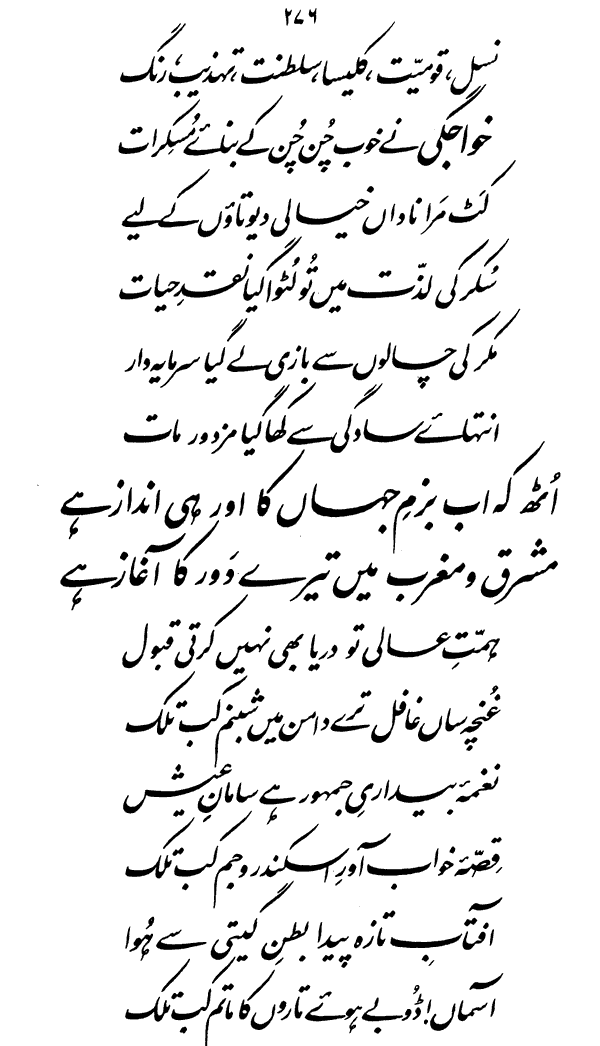 ۲۷۶
نسل، قومیّت، کلیسا، سلطنت، تہذیب، رنگ
خواجگی نے خوب چُن چُن کے بنائے مُسکِرات
کٹ مَرا ناداں خیالی دیوتاؤں کے لیے
سُکر کی لذّت میں تُو لُٹوا گیا نقدِ حیات
مکر کی چالوں سے بازی لے گیا سرمایہ دار
انتہائے سادگی سے کھا گیا مزدور مات
اُٹھ کہ اب بزمِ جہاں کا اور ہی انداز ہے
مشرق و مغرب میں تیرے دَور کا آغاز ہے
ہمّتِ عالی تو دریا بھی نہیں کرتی قبول
غُنچہ ساں غافل ترے دامن میں شبنم کب تلک
نغمۂ بیداریِ جمہور ہے سامانِ عیش
قِصّۂ خواب آورِ اسکندر و جم کب تلک
آفتابِ تازہ پیدا بطنِ گیتی سے ہُوا
آسماں! ڈُوبے ہوئے تاروں کا ماتم کب تلک